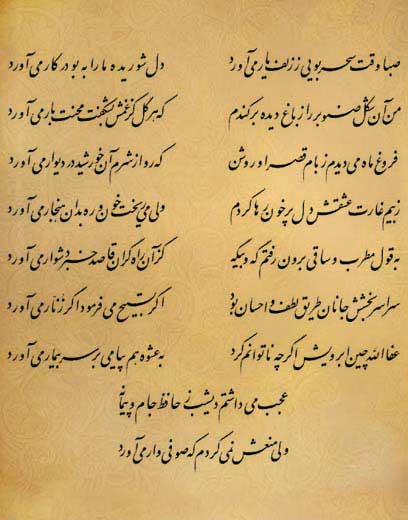 صبا وقت سحر بویی ز زلف یار می‌آورد دل شوریده ما را به بو در کار می‌آورد
من آن شکل صنوبر را ز باغ دیده برکندم که هر گل کز غمش بشکفت محنت بار می‌آورد
فروغ ماه می‌دیدم ز بام قصر او روشن که رو از شرم آن خورشید در دیوار می‌آورد
ز بیم غارت عشقش دل پرخون رها کردم ولی می‌ریخت خون و ره بدان هنجار می‌آورد
به قول مطرب و ساقی برون رفتم گه و بیگه کز آن راه گران قاصد خبر دشوار می‌آورد
سراسر بخشش جانان طریق لطف و احسان بود اگر تسبیح می‌فرمود اگر زنار می‌آورد
عفاالله چین ابرویش اگر چه ناتوانم کرد به عشوه هم پیامی بر سر بیمار می‌آورد
عجب می‌داشتم دیشب ز حافظ جام و پیمانه
ولی منعش نمی‌کردم که صوفی وار می‌آورد